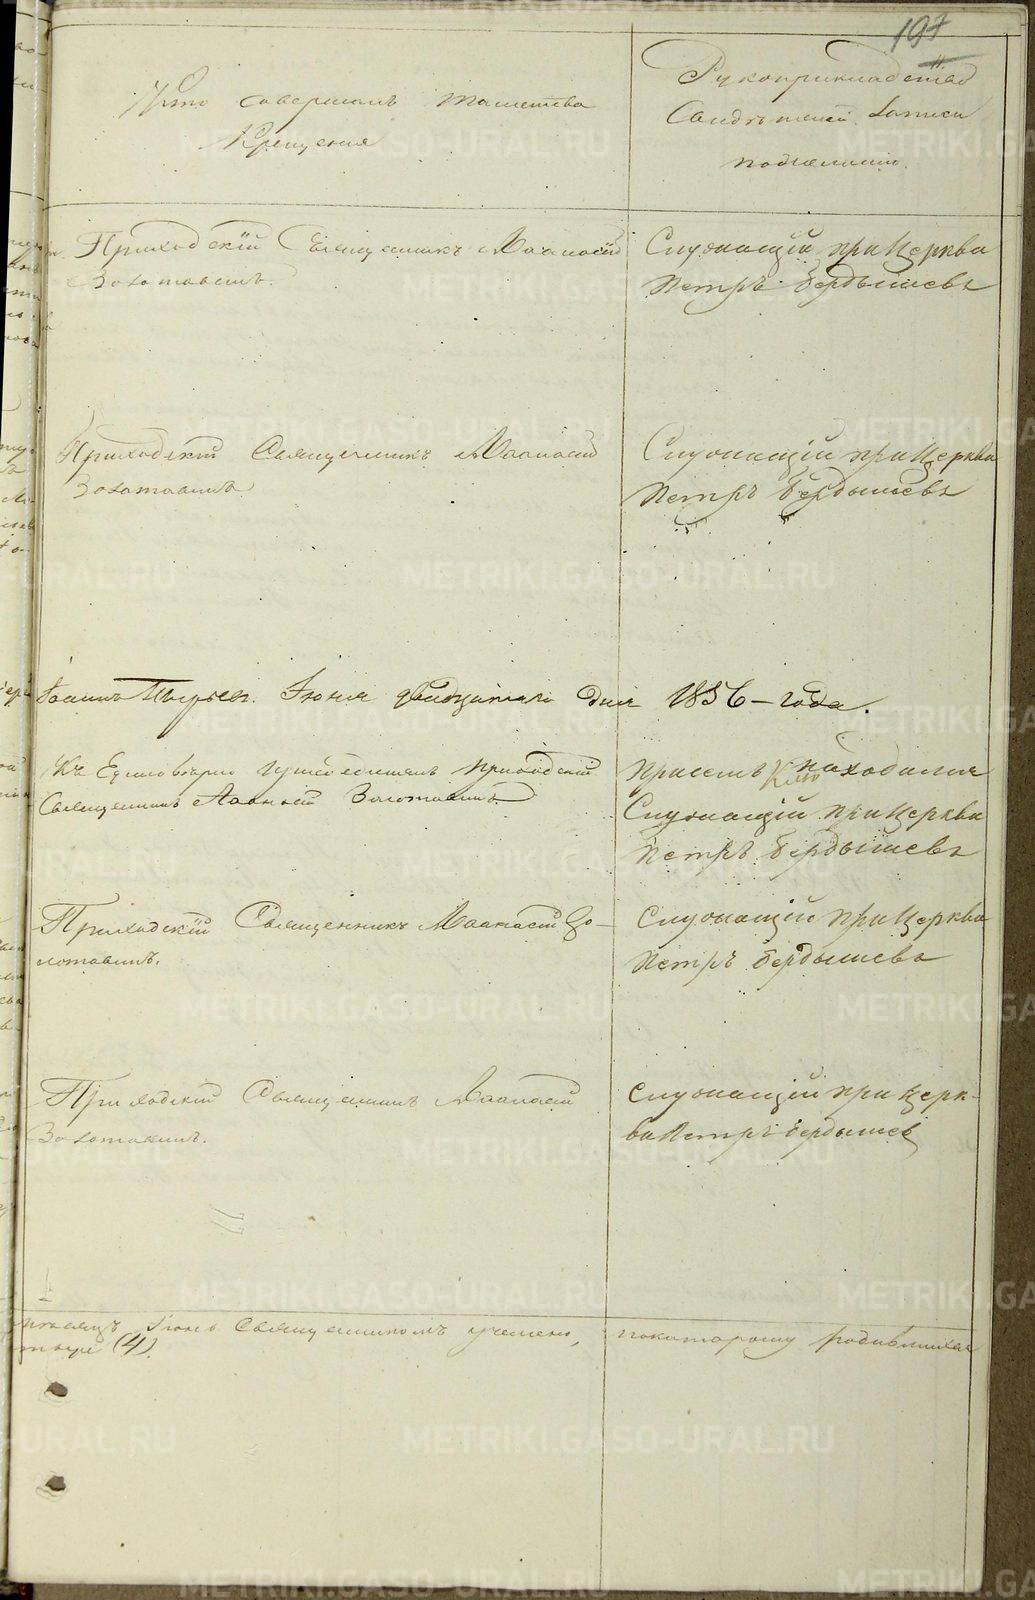 197
Кто совершалъ таинство
Крещенія
Рукоприкладство
Свидѣтелей записи
по желанію.
Приходскій Священникъ Аѳанасій
Золотавинъ.
Служащій при Церкви
Петръ Бердышевъ
Приходскій Священникъ Аѳанасій
Золотавинъ
Служащій при Церкви
Петръ Бердышевъ
Іюня двадцатаго дня 1856 – года.
Къ Единовѣрію присоединялъ приходскій
Священникъ Аѳанасій Золотавинъ.
находился
Служащій при Церкви
Петръ Бердышевъ
Приходскій Священникъ Аѳанасій Зо-
лотавинъ.
Служащій при Церкви
Петръ Бердышевъ
Приходскій Священникъ Аѳанасій
Золотавинъ.
Служащій при Церк-
ви Петръ Бердышев
Іюнь Священникомъ учинено, по которому родившихся
(4).
METRIKI.GASO-URAL.RU